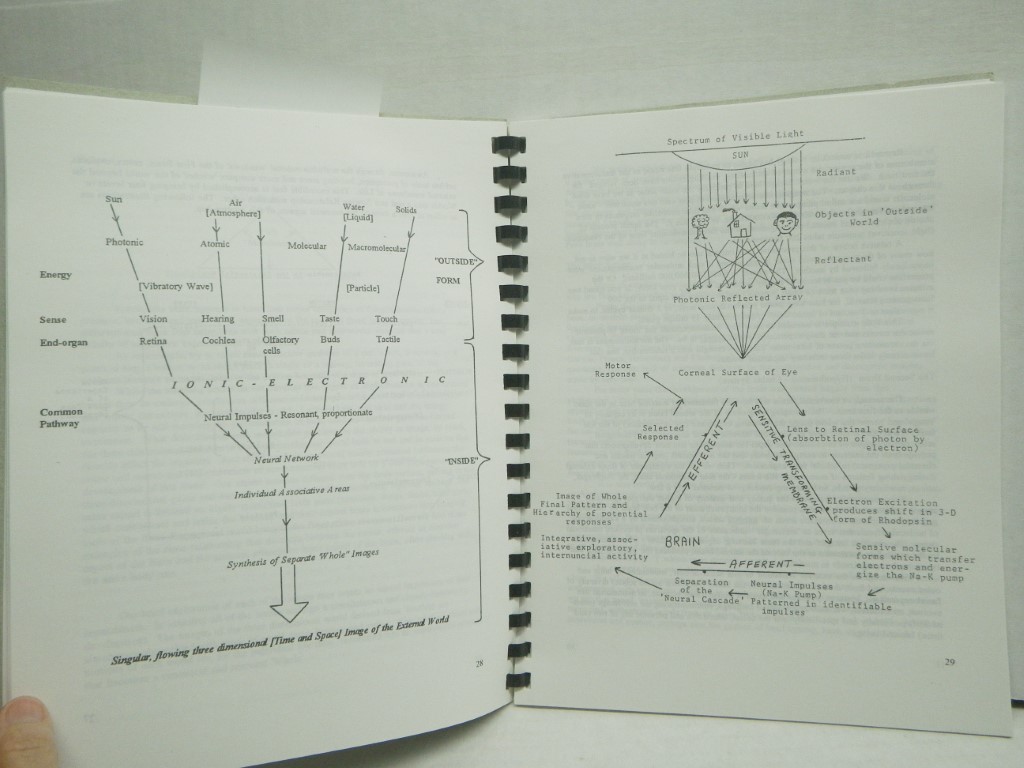 Sun
Air
[Atmosphere]
Water
[Liquid]
Solids
Photonic Atomic Molecular Macromolecular
"OUTSIDE"
FORM
Energy
[Vibratory Wave] [Particle]
Sense Vision Hearing Smell Taste Touch
End-organ Retina Cochlea Olfactory cells Buds Tactile
I O N I C - E L E C T R O N I C
Common Pathway
Neural Impulses - Resonant, proportionate
Neural Network
"INSIDE"
Individual Associative Areas
Synthesis of Separate "Whole" Images
Singular, flowing three dimensional [Time and Space] Image of the External World
28
Spectrum of Visible Light
SUN
Radiant
Objects in 'Outside'
World
Reflectant
Photonic Reflected Array
Corneal Surface of Eye
Motor
Response
Selected
Response
EFFERENT
SENSITIVE TRANSFORMING
MEMBRANE
Lens to Retinal Surface
(absorbtion of photon by
electron)
Electron Excitation
produces shift in 3-D
form of Rhodopsin
Image of Whole
Final Pattern and
Hierarchy of potential
responses
Integrative, assoc-
iative exploratory,
internuncial activity
BRAIN
AFFERENT
Sensive molecular
forms which transfer
electrons and ener-
gize the Na-K pump
Separation
of the
'Neural Cascade'
Neural Impulses
(Na-K Pump)
Patterned in identifiable
impulses
29